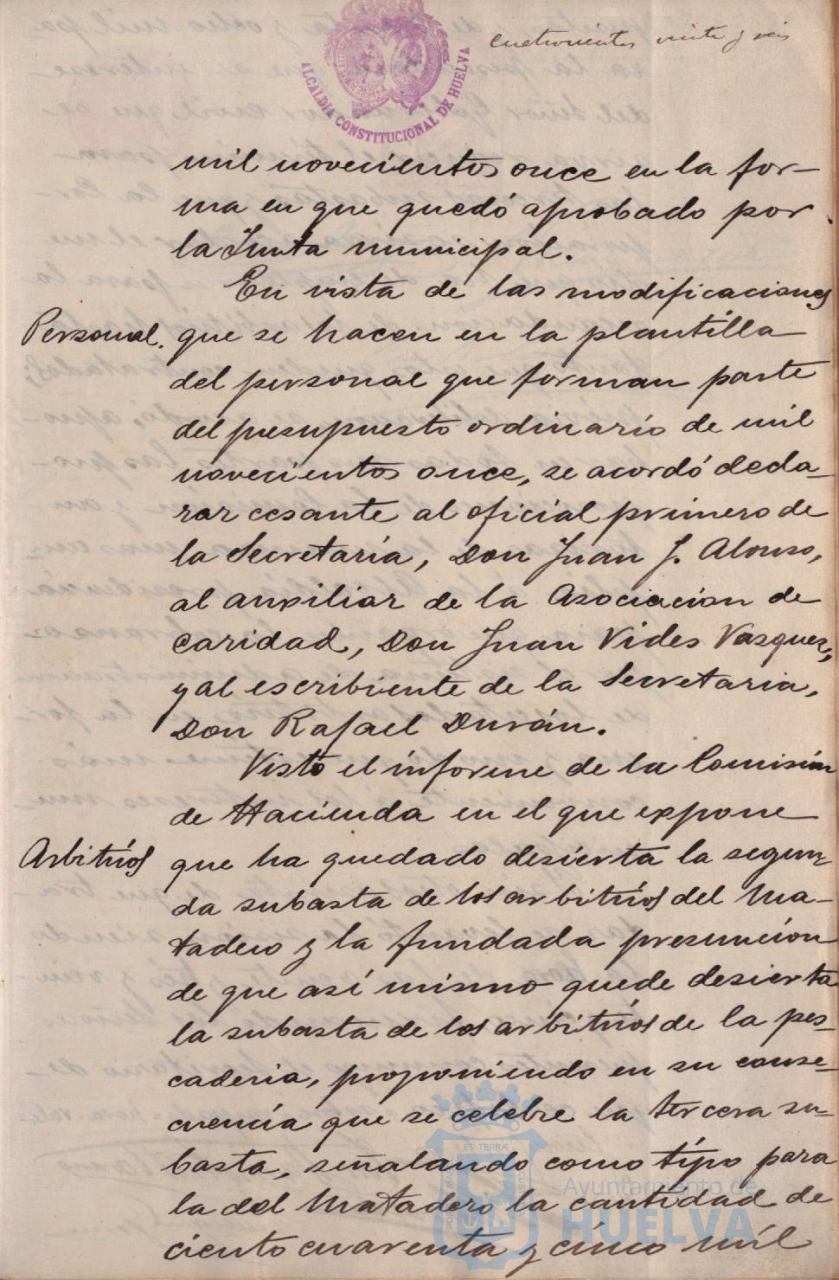 cuatrocientos veinte y seis
ALCALDIA CONSTITUCIONAL DE HUELVA
mil novecientos once en la for-
ma en que quedó aprobado por
la Junta municipal.
En vista de las modificaciones
Personal. que se hacen en la plantilla
del personal que forman parte
del presupuesto ordinario de mil
novecientos once, se acordó decla-
rar cesante al oficial primero de
la Secretaría, Don Juan J. Alonso,
al auxiliar de la Asociacion de
caridad, Don Juan Vides Vasquez,
y al escribiente de la Secretaria,
Don Rafael Durán.
Visto el informe de la Comisión
de Hacienda en el que expone
Arbitrios que ha quedado desierta la segun-
da subasta de los arbitrios del Ma-
tadero y la fundada presunción
de que así mismo quede desierta
la subasta de los arbitrios de la pes-
caderia, proponiendo en su conse-
cuencia que se celebre la tercera su-
basta, señalando como tipo para
la del Matadero la cantidad de
ciento cuarenta y cinco mil
Ayuntamiento de
HUELVA